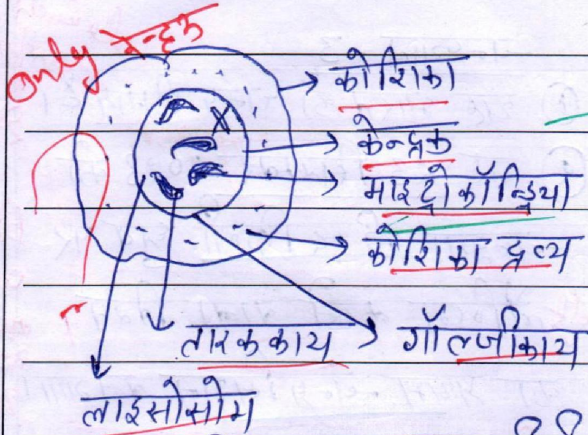 only केन्द्रक
कोशिका
केन्द्रक
माइट्रोकॉन्ड्रिया
कोशिका द्रव्य
तारककाय गॉल्जीकाय
लाइसोसोम